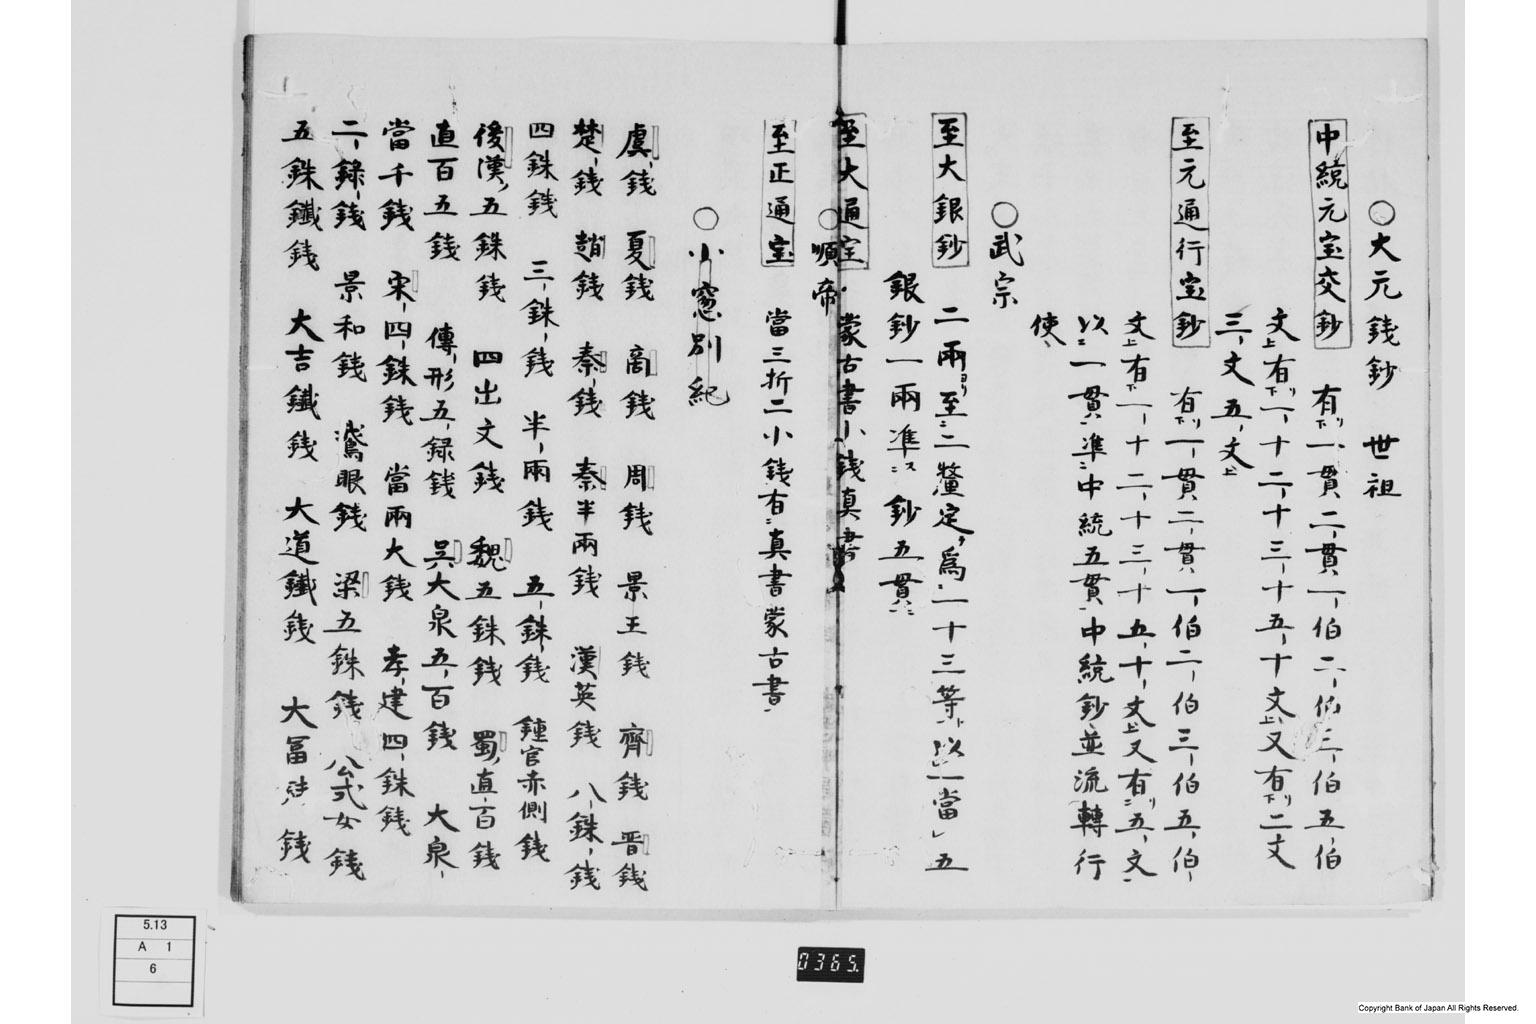 ○大元銭鈔　世祖
中統元宝交鈔　有一貫二貫一伯二伯三伯五伯
文有一十二十三十五十文又有二文
三文五文
至元通行宝鈔　有一貫二貫一伯二伯三伯五伯
文有一十二十三十五十文又有五文
以一貫準中統五貫中統鈔並流轉行
使
○武宗
至大銀鈔　二兩ヨリ至二釐定爲一十三等以一當五
銀鈔一兩準鈔五貫
至大通宝　蒙古書小銭真書
○順帝
至正通宝　當三折二小銭有真書蒙古書
○小窓別紀
虞銭　夏銭　商銭　周銭　景王銭　齊銭　晋銭
楚銭　趙銭　秦銭　秦半兩銭　漢英銭　八銖銭
四銖銭　三銖銭　半兩銭　五銖銭　鍾官赤側銭
後漢五銖銭　四出文銭　魏五銖銭　蜀直百銭
直百五銭　傳形五銖銭　呉大泉五百銭　大泉
當千銭　宋四銖銭　當兩大銭　孝建四銖銭
二銖銭　景和銭　鵞眼銭　梁五銖銭　公式女銭
五銖鐵銭　大吉鐵銭　大道鐵銭　大冨　銭
5.13
A 1
6
0365.
Copyright Bank of Japan All Rights Reserved.